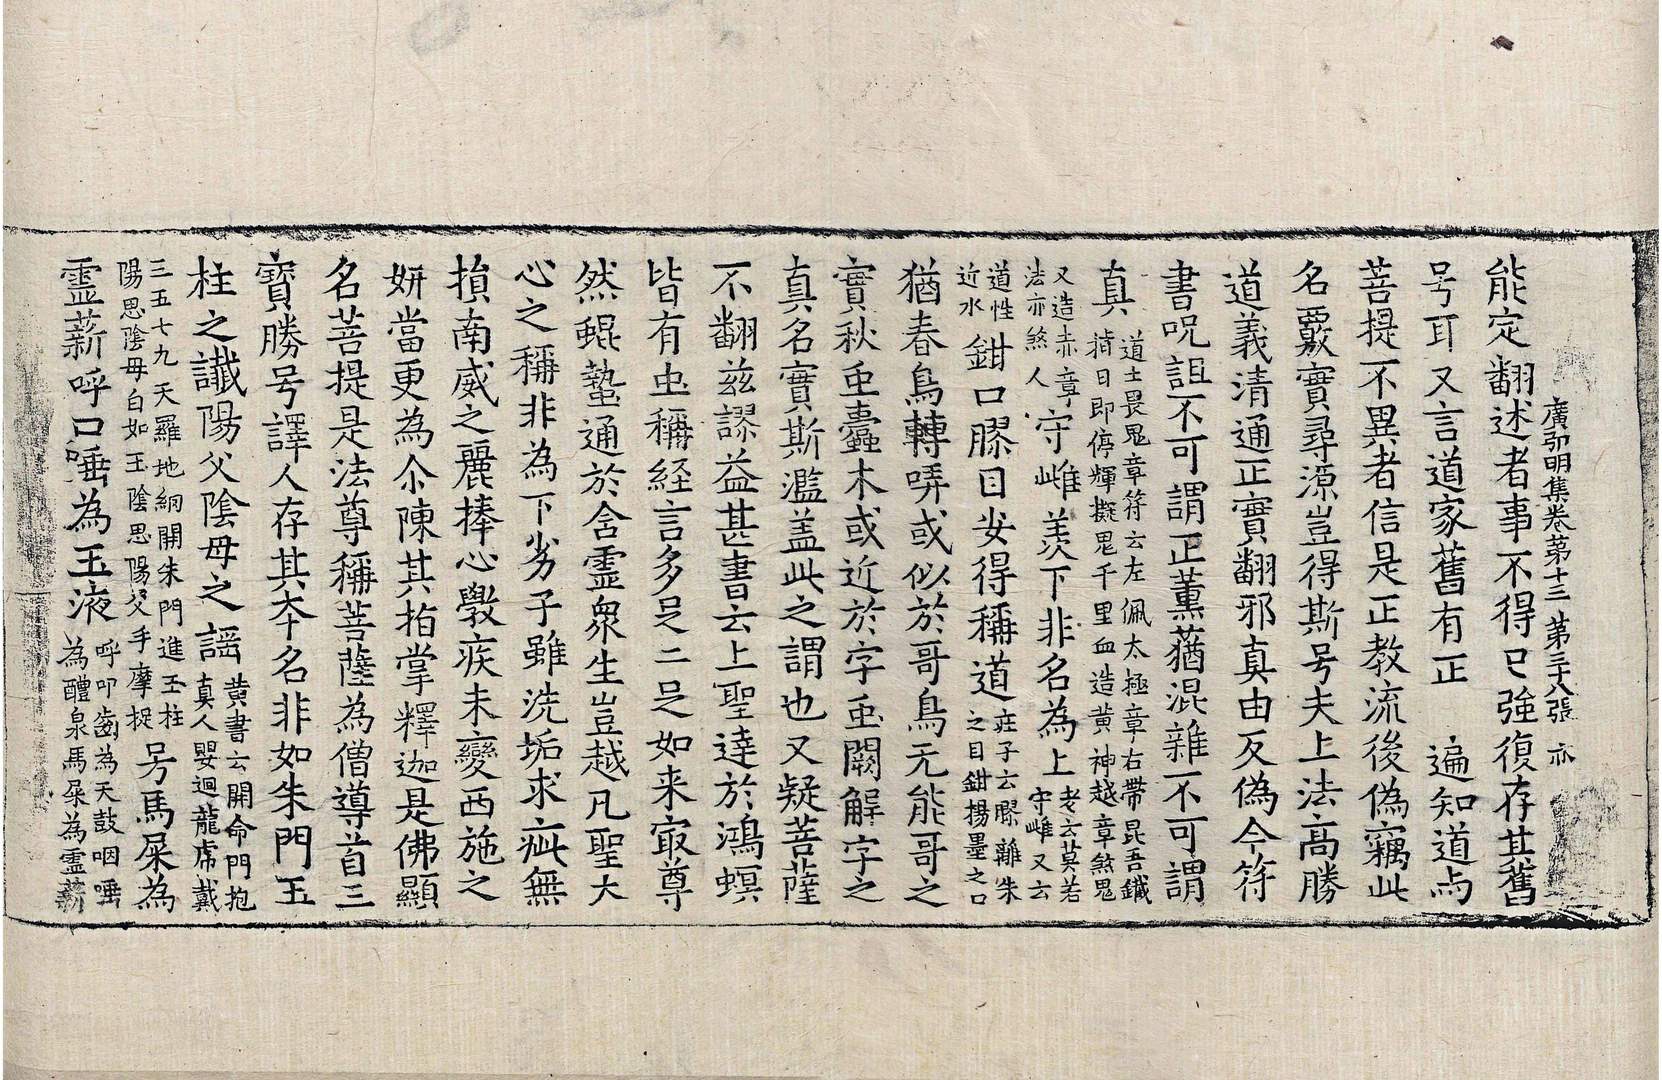 廣弘明集卷第十三　第三十八張　亦
能定翻述者事不得已強復存其舊
号耳又言道家舊有正　遍知道与
菩提不異者信是正教流後偽竊此
名覈實尋源豈得斯号夫上法高勝
道義清通正實翻邪真由反偽今符
書呪詛不可謂正薰蕕混雜不可謂
真道士畏鬼章符云左佩太極章右帶昆吾鐵
指日即停輝擬鬼千里血造黃神越章煞鬼
又造赤章
法亦煞人守雌羨下非名為上老云莫若
守雌又云
道性
近水鉗口膠目安得稱道莊子云膠離朱
之目鉗揚墨之口
猶春鳥轉哢或似於哥鳥无能哥之
實秋虫蠹木或近於字虫闕解字之
真名實斯濫盖此之謂也又疑菩薩
不翻茲謬益甚書云上聖達於鴻螟
皆有虫稱経言多足二足如来㝡尊
然鯤蟄通於含靈衆生豈越凡聖大
心之稱非為下劣子雖洗垢求疵無
損南威之麗捧心斆疾未變西施之
妍當更為尒陳其指掌釋迦是佛顯
名菩提是法尊稱菩薩為僧導首三
寶勝号譯人存其本名非如朱門玉
柱之讖陽父陰母之謡黄書云開命門抱
真人嬰迴龍虎戴
三五七九天羅地網開朱門進玉柱
陽思陰母白如玉陰思陽父手摩捉号馬屎為
靈薪呼口唾為玉液呼叩齒為天鼓咽唾
為醴泉馬屎為靈薪